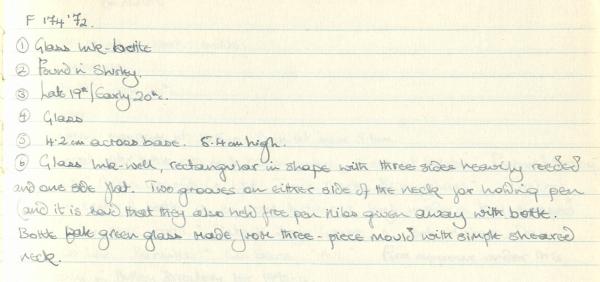 F 174'72.
① Glass Ink-bottle
② Found in Shirley.
③ Late 19th/Early 20thc.
④ Glass
⑤ 4.2 cm across base. 5.4 cm high.
⑥ Glass Ink-well, rectangular in shape with three sides heavily reeded
and one side flat. Two grooves on either side of the neck for holding pen
(and it is said that they also held free pen nibs given away with bottle.
Bottle pale green glass made from three-piece mould with simple sheared
neck.